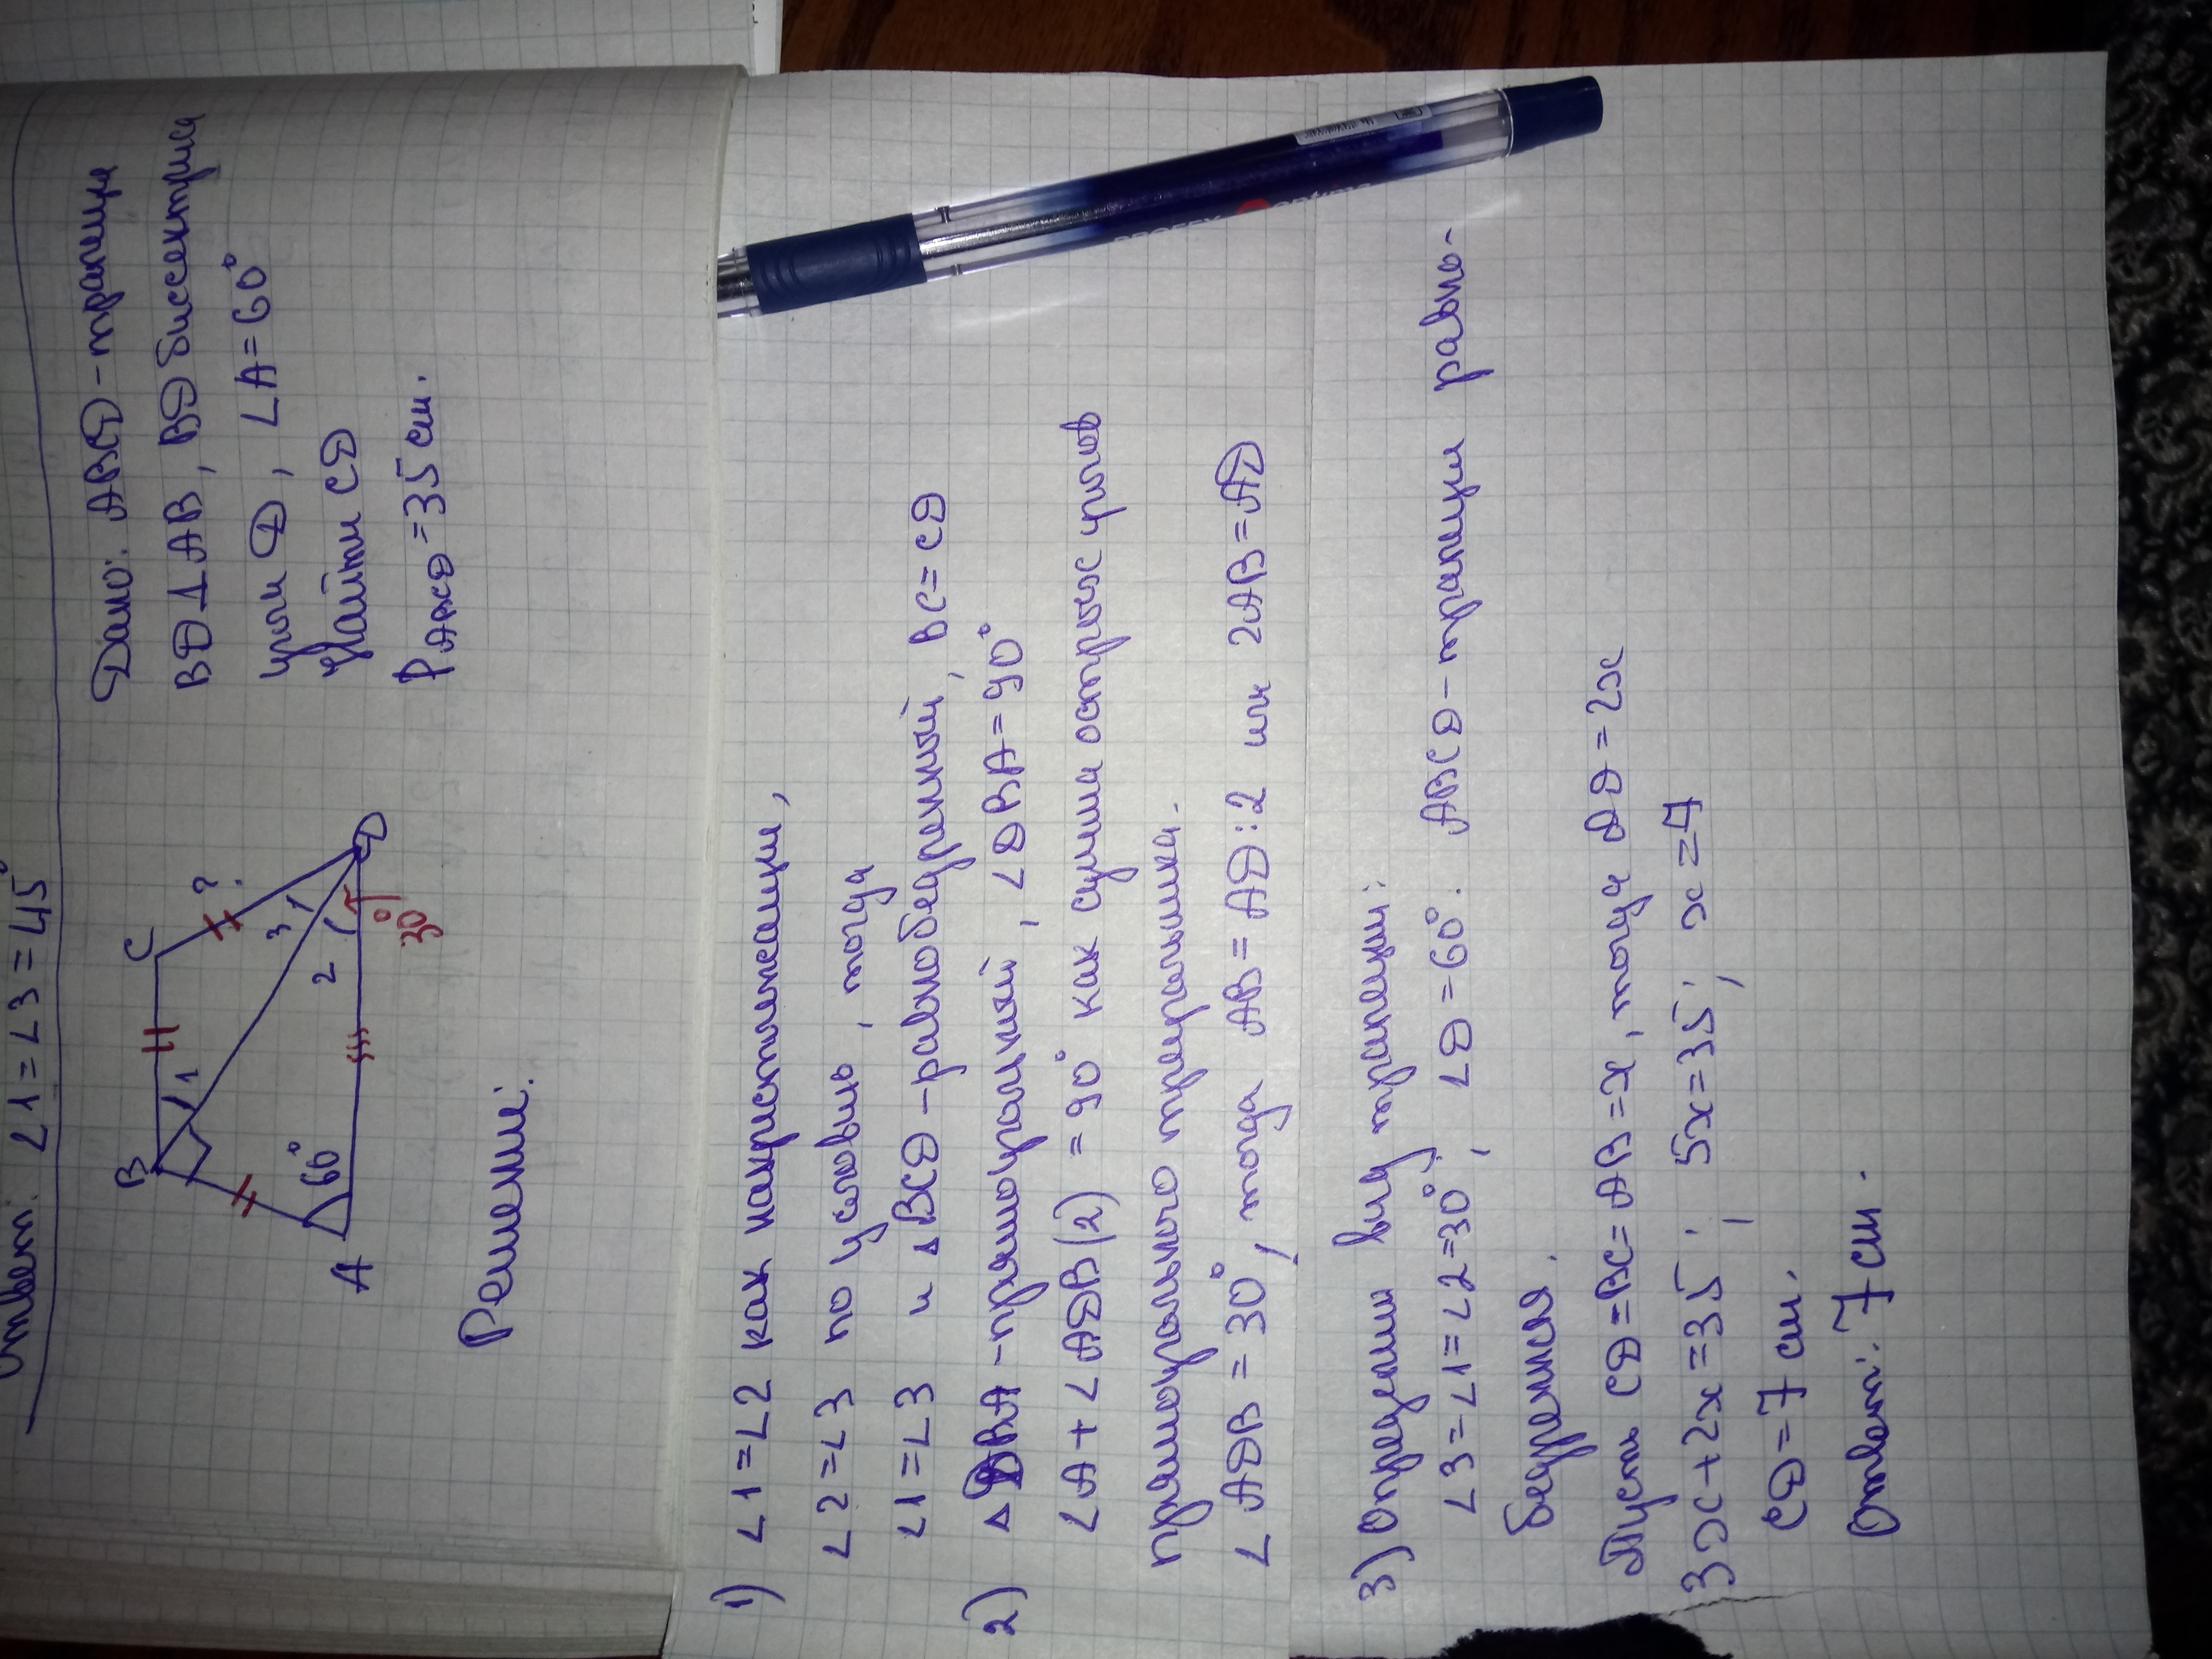 Ответ: ∠1=∠3=45°
Дано: ABCD-трапеция
BD⊥AB, BD биссектриса
угла D, ∠A=60°
Найти CD
P ABCD=35 см.
B
C
?
1
3
2
60°
A
D
30°
Решение:
1) ∠1=∠2 как накрестлежащие,
∠2=∠3 по условию, тогда
∠1=∠3 и ΔBCD-равнобедренный, BC=CD
2) ΔDBA-прямоугольный, ∠DBA=90°
∠A+∠ADB(2)=90° как сумма острых углов
прямоугольного треугольника.
∠ADB=30°, тогда AB=AD:2 или 2AB=AD
3) Определим вид трапеции:
∠3=∠1=∠2=30°, ∠D=60°: ABCD-трапеция равно-
бедренная.
Пусть CD=BC=AB=x, тогда AD=2x
3x+2x=35; 5x=35; x=7
CD=7 см.
Ответ: 7 см.